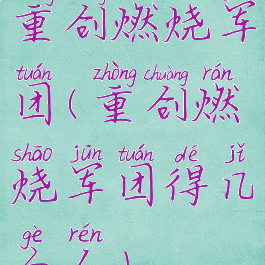 重创燃烧军
tuán zhòng chuàng rán
团(重创燃
shāo jūn tuán dé jǐ
烧军团得几
gè rén